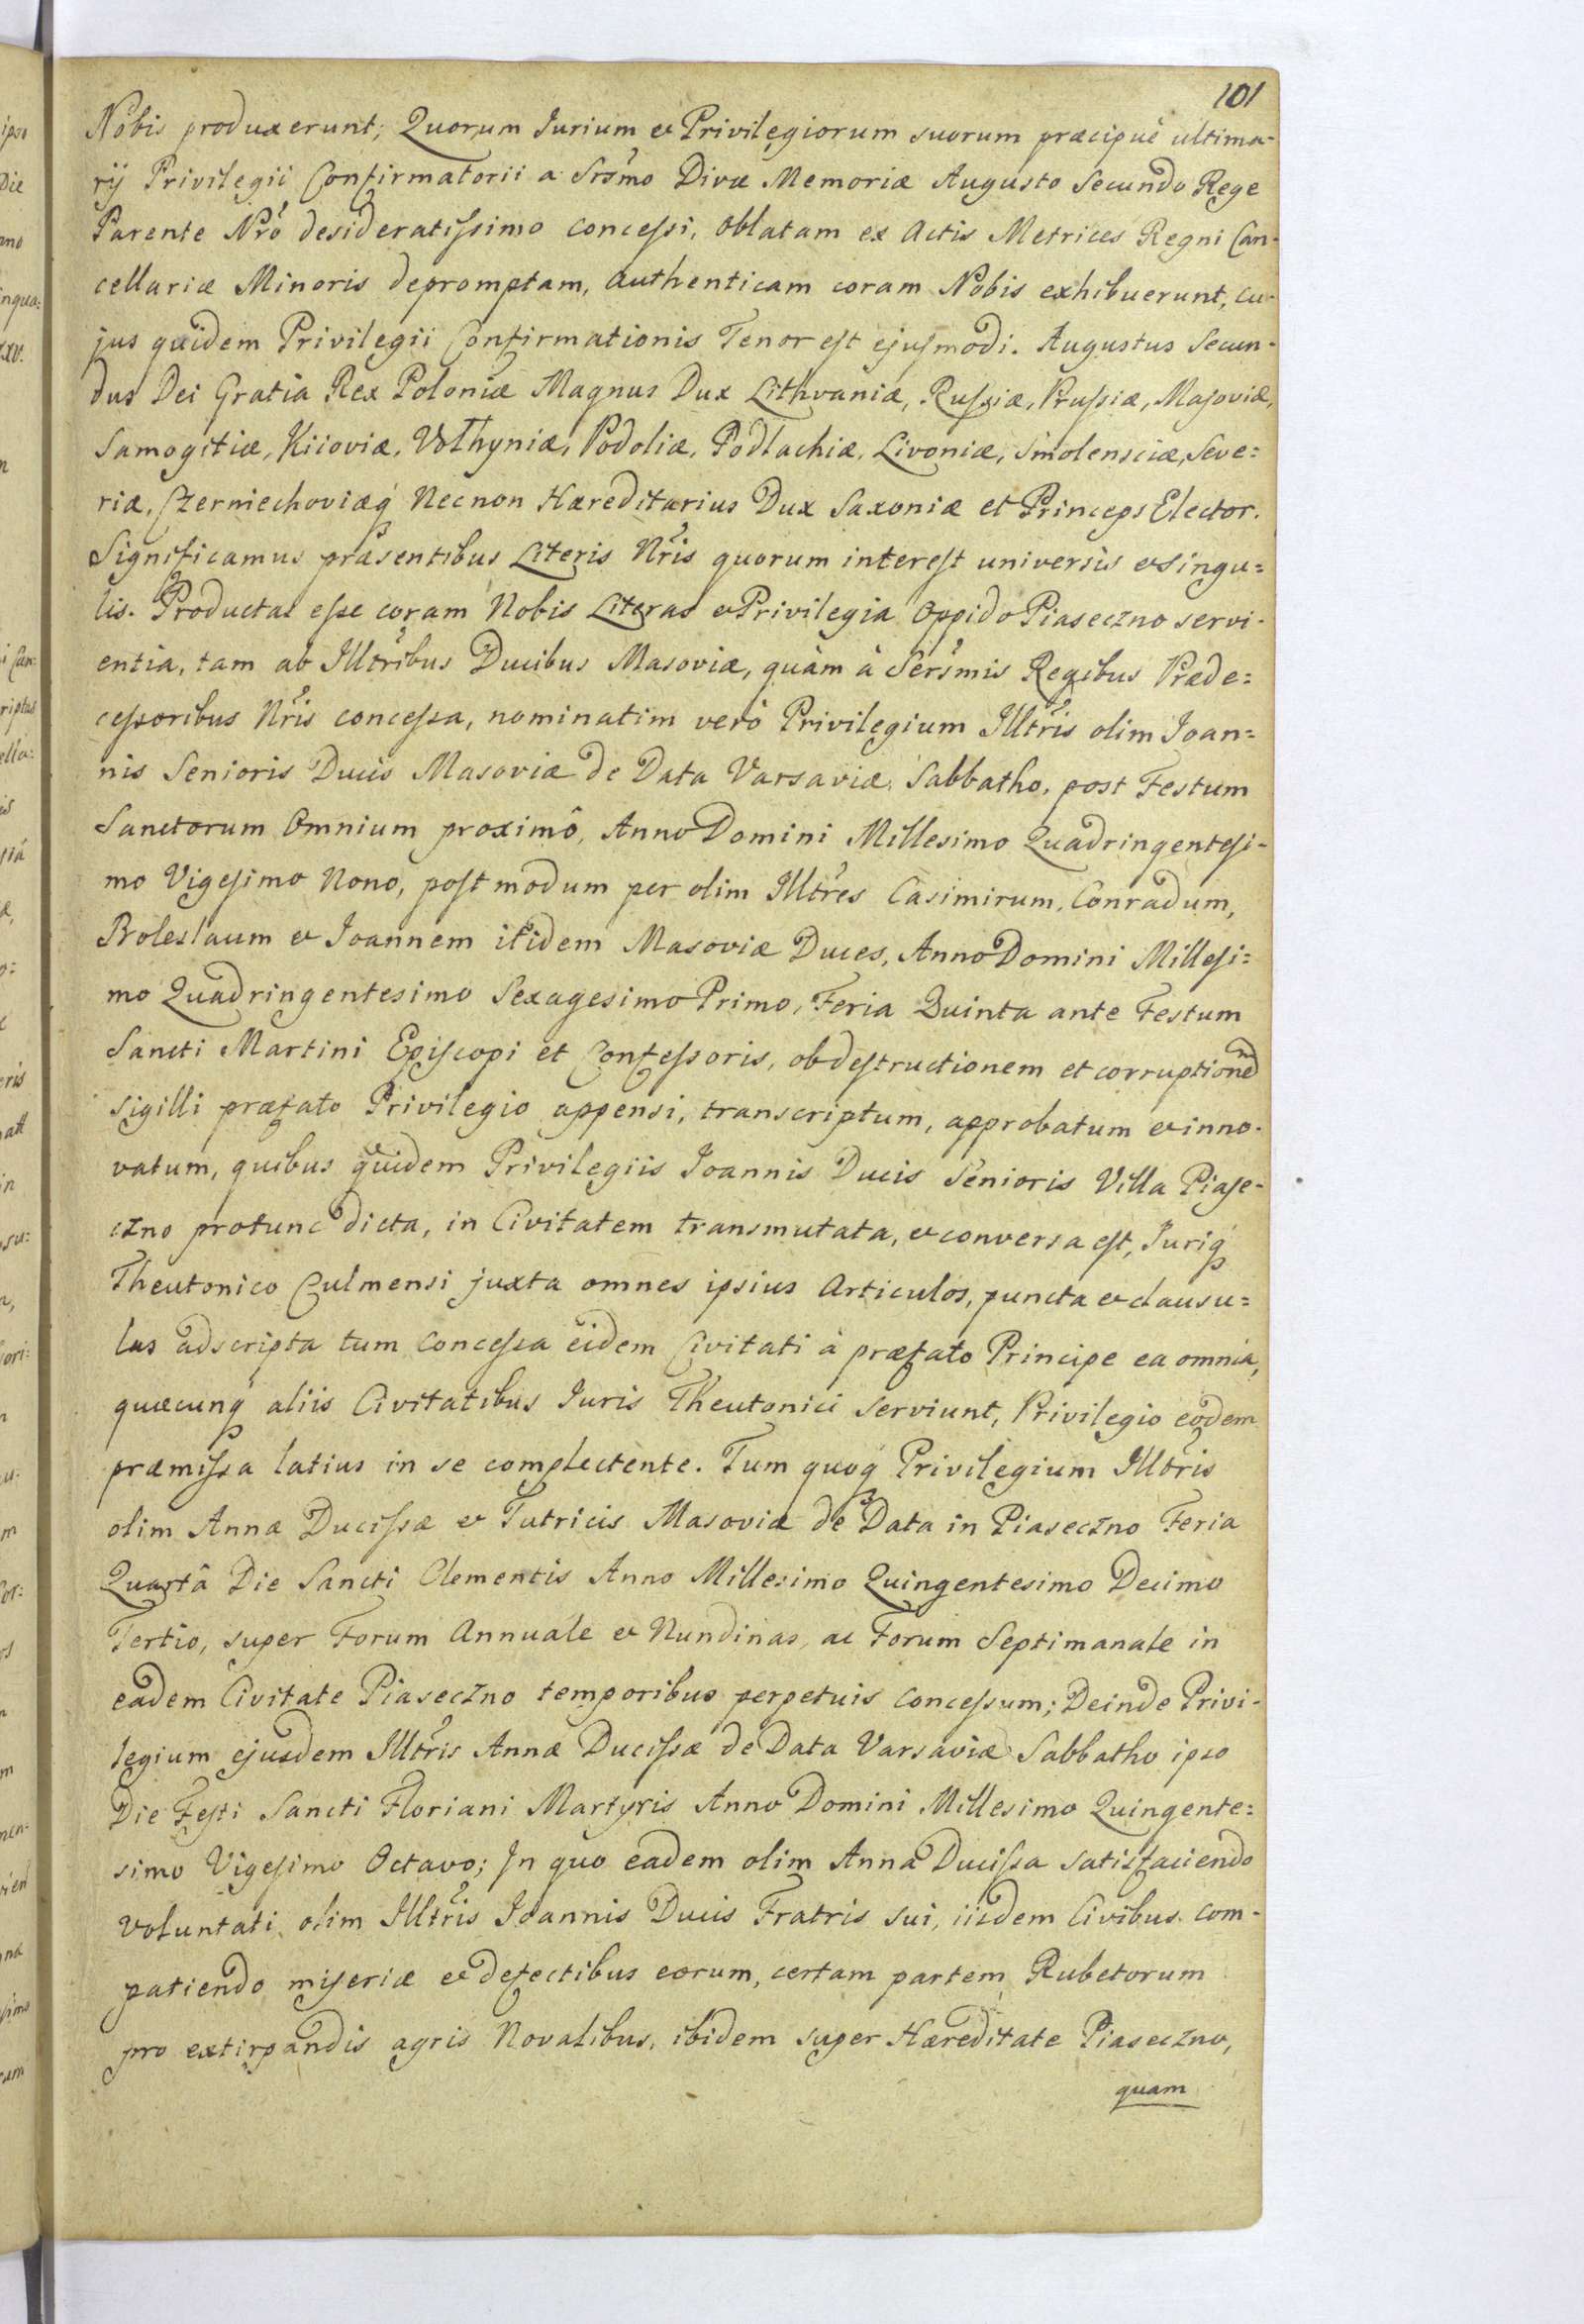 101
Nobis produxerunt; Quorum Iurium et Privilegiorum suorum præcipuè ultima-
rij Privilegii Confirmatorii a Srsmo Divæ Memoriæ Augusto Secundo Rege
Parente Nrô desideratissimo concessi, oblatam ex Actis Metrices Regni Can-
cellariæ Minoris depromptam, authenticam coram Nobis exhibuerunt, cu-
jus quidem Privilegii Confirmationis Tenor est ejusmodi. Augustus Secun-
dus Dei Gratia Rex Poloniæ Magnus Dux Lithvaniæ, Russiæ, Prussiæ, Masoviæ,
Samogitiæ, Kiioviæ, Volhyniæ, Podoliæ, Podlachiæ, Livoniæ, Smolensciæ, Seve=
riæ, Czerniechoviæq́ Necnon Hæreditarius Dux Saxoniæ et Princeps Elector.
Significamus præsentibus Literis Nris quorum interest universis et singu=
lis. Productas esse coram Nobis Literas et Privilegia Oppido Piaseczno servi-
entia, tam ab Illtribus Ducibus Masoviæ, quàm à Sersmis Regibus Præde=
cessoribus Nris concessa, nominatim verò Privilegium Illtris olim Ioan=
nis Senioris Ducis Masoviæ de Data Varsaviæ Sabbatho, post Festum
Sanctorum Omnium proximô, Anno Domini Millesimo Quadringentesi-
mo Vigesimo Nono, postmodum per olim Illtres Casimirum, Conradum,
Boleslaum et Ioannem itidem Masoviæ Duces, Anno Domini Millesi=
mo Quadringentesimo Sexagesimo Primo, Feria Quinta ante Festum
Sancti Martini Episcopi et Confessoris, ob destructionem et corruptionem
sigilli præfato Privilegio appensi, transcriptum, approbatum et inno-
vatum, quibus quidem Privilegiis Ioannis Ducis Senioris Villa Piase-
czno protunc dicta, in Civitatem transmutata, et conversa est, Iuriq́
Theutonico Culmensi juxta omnes ipsius Articulos, puncta et clausu=
las adscripta tum concessa eidem Civitati à præfato Principe ea omnia,
quæcunq́ aliis Civitatibus Iuris Theutonici serviunt, Privilegio eodem
præmissa latius in se complectente. Tum quoq́ Privilegium Illtris
olim Annæ Ducissæ et Tutricis Masoviæ de Data in Piaseczno Feria
Quartâ Die Sancti Clementis Anno Millesimo Quingentesimo Decimo
Tertio, super Forum Annuale et Nundinas, ac Forum Septimanale in
eadem Civitate Piaseczno temporibus perpetuis concessum; Deinde Privi-
legium ejusdem Illtris Annæ Ducissæ de Data Varsaviæ Sabbatho ipso
Die Festi Sancti Floriani Martyris Anno Domini Millesimo Quingente=
simo Vigesimo Octavo; In quo eadem olim Anna Ducissa satisfaciendo
voluntati olim Illtris Ioannis Ducis Fratris sui, iisdem Civibus com-
patiendo miseriæ et defectibus eorum, certam partem Rubetorum
pro extirpandis agris Novalibus, ibidem super Hæreditate Piaseczno,
quam